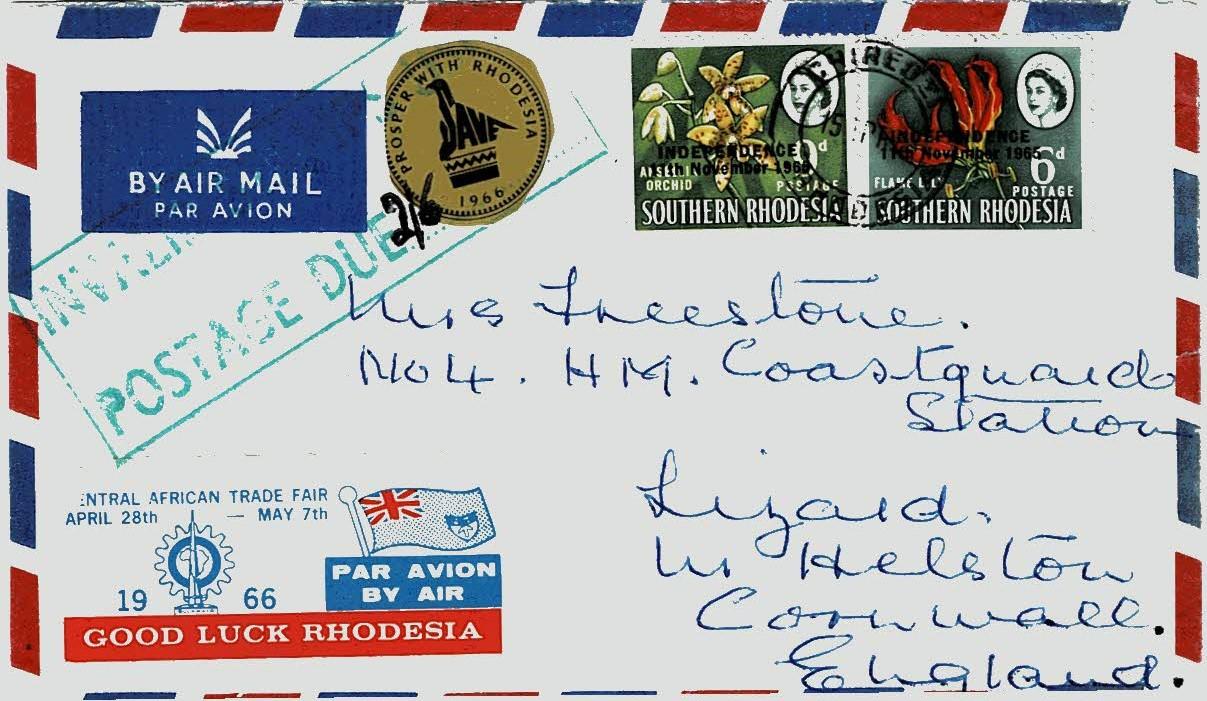 BY AIR MAIL
PAR AVION
PROSPER WITH RHODESIA
SAVE
1966
2/6
POSTAGE DUE
INDEPENDENCE
11th November 1965
ANSELLIA
ORCHID
POSTAGE
SOUTHERN RHODESIA
INDEPENDENCE
11th November 1965
6d
FLAME LILY
POSTAGE
SOUTHERN RHODESIA
Mrs Freestone.
No 4. HM. Coastguard
Station
Lizard.
Nr Helston
Cornwall.
England.
ENTRAL AFRICAN TRADE FAIR
APRIL 28th — MAY 7th
19 66
PAR AVION
BY AIR
GOOD LUCK RHODESIA